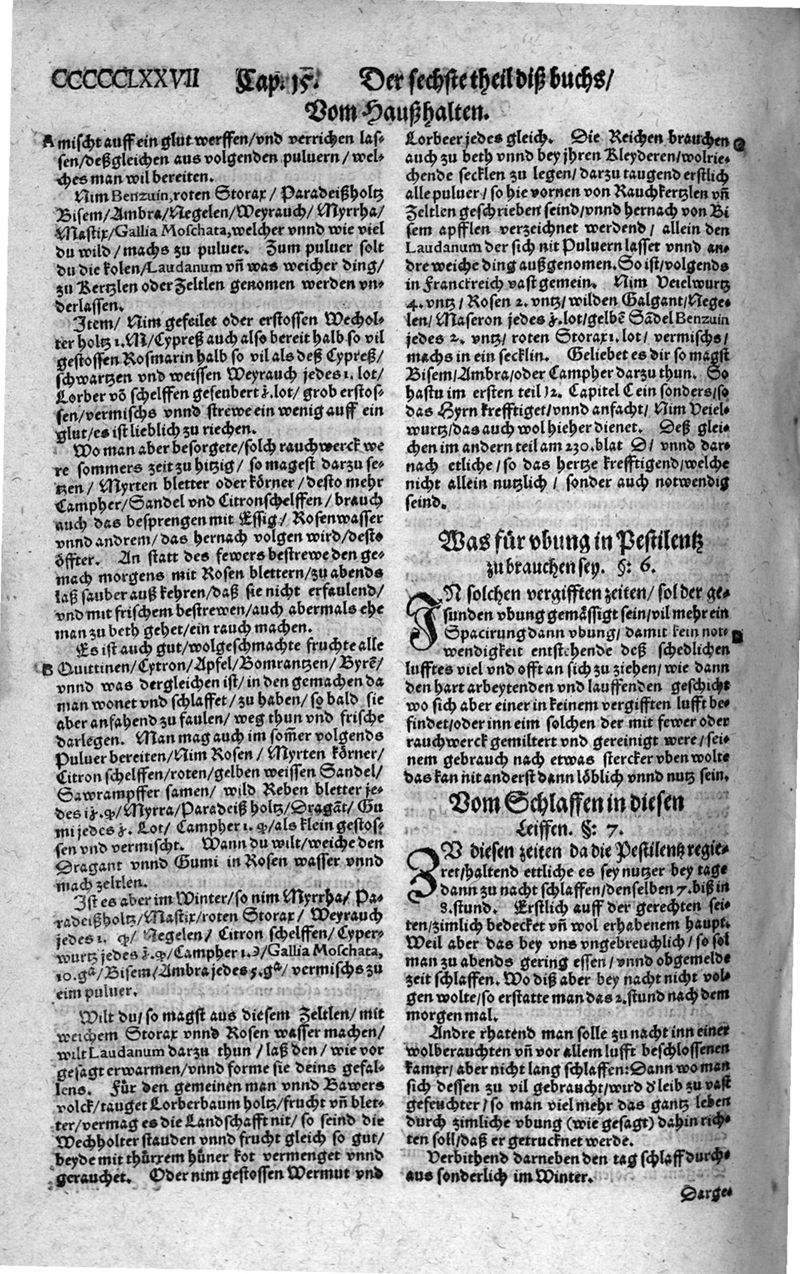 CCCCCLXXVII Cap. 15. Der sechste theil diß buchs/
Vom Haußhalten.
A mischt auff ein glut werffen/vnd verrichen las-
sen/deßgleichen aus volgenden puluern/wel-
ches man wil bereiten.
Nim Benzuin, roten Storax/Paradeißholtz
Bisem/Ambra/Negelen/Weyrauch/Myrrha/
Mastix/Gallia Moschata, welcher vnnd wie viel
du wild/machs zu puluer. Zum puluer solt
du die kolen/Laudanum vñ was weicher ding/
zu Kertzlen oder Zeltlen genomen werden vn-
derlassen.
Item/Nim gefeilet oder erstossen Wechol-
ter holtz 1. M/Cypreß auch also bereit halb so vil
gestossen Rosmarin halb so vil als deß Cypreß/
schwartzen vnd weissen Weyrauch jedes 1. lot/
Lorber võ schelffen geseubert ʒ. lot/grob erstos-
sen/vermischs vnnd strewe ein wenig auff ein
glut/es ist lieblich zu riechen.
Wo man aber besorgete/solch rauchwerck we
re sommers zeit zu hitzig/so magest darzu se-
tzen/Myrten bletter oder körner/desto mehr
Campher/Sandel vnd Citronschelffen/brauch
auch das besprengen mit Essig/Rosenwasser
vnnd andrem/das hernach volgen wird/desto
öffter. An statt des fewers bestrewe den ge-
mach morgens mit Rosen blettern/zu abends
laß sauber auß kehren/daß sie nicht erfaulend/
vnd mit frischem bestrewen/auch abermals ehe
man zu beth gehet/ein rauch machen.
Es ist auch gut/wolgeschmachte fruchte alle
B Quittinen/Cytron/Apfel/Bomrantzen/Byrẽ/
vnnd was dergleichen ist/in den gemachen da
man wonet vnd schlaffet/zu haben/so bald sie
aber anfahend zu faulen/weg thun vnd frische
darlegen. Man mag auch im som̃er volgends
Puluer bereiten/Nim Rosen/Myrten körner/
Citron schelffen/roten/gelben weissen Sandel/
Sawrampffer samen/wild Reben bletter je-
des /Myrra/Paradeiß holtz/Dragãt/Gu
mi jedes ʒ. Lot/Campher 1. /als klein gestos-
sen vnd vermischt. Wann du wilt/weiche den
Dragant vnnd Gumi in Rosen wasser vnnd
mach zeltlen.
Ist es aber im Winter/so nim Myrrha/Pa-
radeißholtz/Mastix/roten Storax/Weyrauch
jedes 1. /Negelen/Citron schelffen/Cyper-
wurtz jedes /Campher 1. /Gallia Moschata,
10. gᵃ/Bisem/Ambra jedes 5. gᵃ/vermischs zu
eim puluer.
Wilt du/so magst aus diesem Zeltlen/mit
weichem Storax vnnd Rosen wasser machen/
wilt Laudanum darzu thun/laß den/wie vor
gesagt erwarmen/vnnd forme sie deins gefal-
lens. Für den gemeinen man vnnd Bawers
volck/tauget Lorberbaum holtz/frucht vñ blet-
ter/vermag es die Landschafft nit/so seind die
Wechholter stauden vnnd frucht gleich so gut/
beyde mit thürrem hüner kot vermenget vnnd
gerauchet. Oder nim gestossen Wermut vnd
Lorbeer jedes gleich. Die Reichen brauchen C
auch zu beth vnnd bey jhren Kleyderen/wolrie-
chende secklen zu legen/darzu taugend erstlich
alle puluer/so hie vornen von Rauchkertzlen vñ
Zeltlen geschrieben seind/vnnd hernach von Bi
sem apfflen verzeichnet werdend/allein den
Laudanum der sich nit Puluern lasset vnnd an-
dre weiche ding außgenomen. So ist/volgends
in Franckreich vast gemein. Nim Veielwurtz
4. vntz/Rosen 2. vntz/wilden Galgant/Nege-
len/Maseron jedes ʒ. lot/gelbẽ Sãdel Benzuin
jedes 2. vntz/roten Storax 1. lot/vermischs/
machs in ein secklin. Geliebet es dir so magst
Bisem/Ambra/oder Campher darzu thun. So
hastu im ersten teil 12. Capitel C ein sonders/so
das Hyrn krefftiget/vnnd anfacht/Nim Veiel-
wurtz/das auch wol hieher dienet. Deß glei-
chen im andern teil am 230. blat D/vnnd dar-
nach etliche/so das hertze krefftigend/welche
nicht allein nutzlich/sonder auch notwendig
seind.
Was für vbung in Pestilentz
zu brauchen sey. §. 6.
IN solchen vergifften zeiten/sol der ge-
sunden vbung gemässigt sein/vil mehr ein
Spacirung dann vbung/damit kein not- D
wendigkeit entstehende deß schedlichen
lufftes viel vnd offt an sich zu ziehen/wie dann
den hart arbeytenden vnd lauffenden geschicht
wo sich aber einer in keinem vergifften lufft be-
findet/oder inn eim solchen der mit fewer oder
rauchwerck gemiltert vnd gereinigt were/sei-
nem gebrauch nach etwas stercker vben wolte
das kan nit anderst dann löblich vnnd nutz sein.
Vom Schlaffen in diesen
Leiffen. §. 7.
ZV diesen zeiten da die Pestilentz regie-
ret/haltend ettliche es sey nutzer bey tage
dann zu nacht schlaffen/denselben 7. biß in
8. stund. Erstlich auff der gerechten sei-
ten/zimlich bedecket vñ wol erhabenem haupt.
Weil aber das bey vns vngebreuchlich/so sol
man zu abends gering essen/vnnd obgemelde
zeit schlaffen. Wo diß aber bey nacht nicht vol-
gen wolte/so erstatte man das 2. stund nach dem
morgen mal.
Andre rhatend man solle zu nacht inn einer
wolberauchten vñ vor allem lufft beschlossenen
kamer/aber nicht lang schlaffen: Dann wo man
sich dessen zu vil gebraucht/wird d' leib zu vast
gefeuchter/so man viel mehr das gantz leben
durch zimliche vbung (wie gesagt) dahin rich-
ten soll/daß er getrucknet werde.
Verbithend darneben den tag schlaff durch-
aus sonderlich im Winter.
Darge-